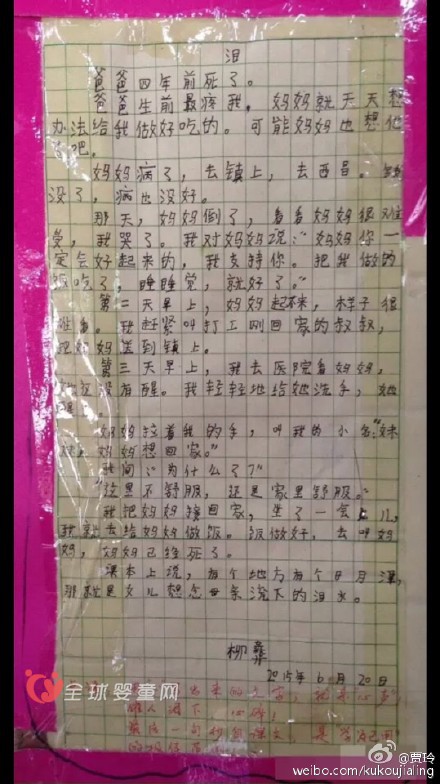 泪
爸爸四年前死了。
爸爸生前最疼我，妈妈就天天想
办法给我做好吃的。可能妈妈也想他
吧。
妈妈病了，去镇上，去西昌。
没了，病也没好。
那天，妈妈倒了，看看妈妈很难
受，我哭了。我对妈妈说：“妈妈你一
定会好起来的，我支持你。把我做的
饭吃了，睡睡觉，就好了。”
第二天早上，妈妈起不来，样子很
难看。我赶紧叫打工刚回家的叔叔，
把妈妈送到镇上。
第三天早上，我去医院看妈妈，
她还没有醒。我轻轻地给她洗手，她
醒
妈妈拉着我的手，叫我的小名：“妹
妹，妈妈想回家。”
我问：“为什么了？”
“这里不舒服，还是家里舒服。”
我把妈妈接回家，坐了一会儿，
我就去给妈妈做饭。饭做好，去叫妈
妈，妈妈已经死了。
课本上说，有个地方有个日月潭，
那就是女儿想念母亲流下的泪水。
柳彝
2015年6月20日
全球婴童网
@贾玲
weibo.com/kukoujialing